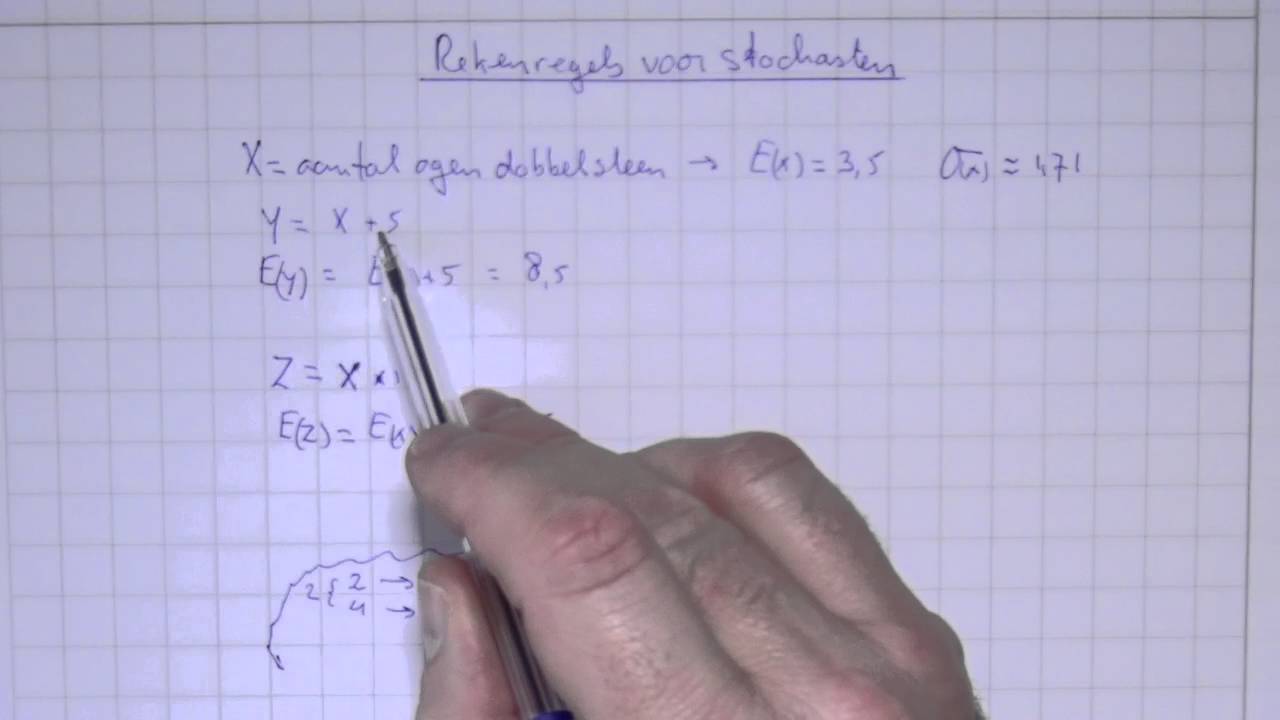 Rekenregels voor stochasten
X = aantal ogen dobbelsteen → E(x) = 3,5 σ(x) ≈ 1,71
Y = X + 5
E(y) = +5 = 8,5
Z = X ×
E(z) = E(x)
2 { 2 →
4 →